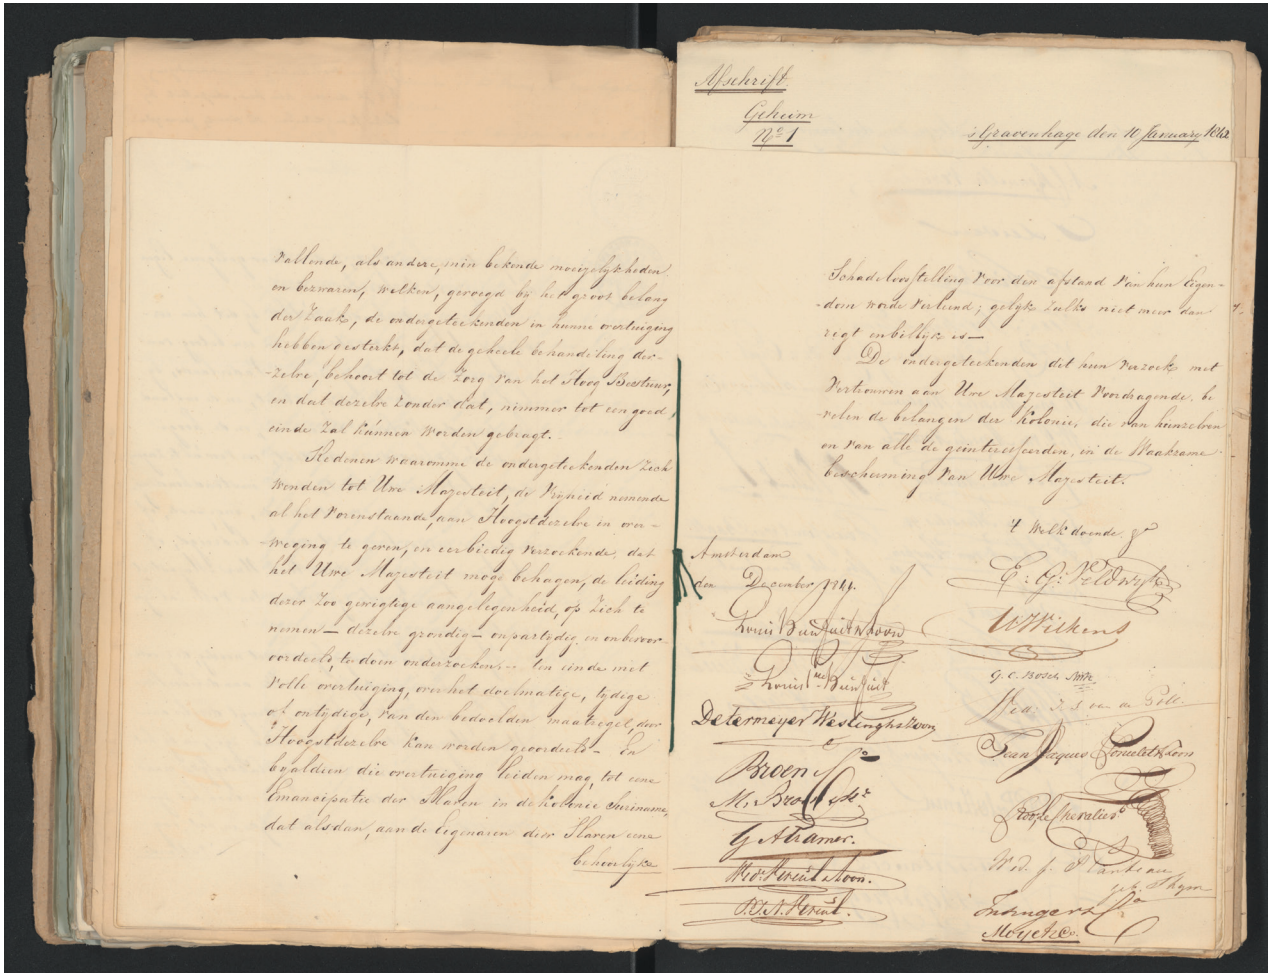 vallende, als andere, min bekende moeijelykheden
en bezwaren, welken, gevoegd bij het groot belang
der Zaak, de ondergeteekenden in hunne overtuiging
hebben versterkt, dat de geheele behandeling der-
-zelve, behoort tot de Zorg van het Hoog Bestuur,
en dat dezelve zonder dat, nimmer tot een goed
einde zal kunnen worden gebragt.
Redenen waaromme de ondergeteekenden zich
wenden tot Uwe Majesteit, de vryheid nemende
al het vorenstaande, aan Hoogstdezelve in over-
weging te geven, en eerbiedig verzoekende dat
het Uwe Majesteit moge behagen, de leiding
dezer zoo gewigtige aangelegenheid, op Zich te
nemen — dezelve grondig — onpartydig en onbevoor-
oordeeld te doen onderzoeken, — ten einde met
volle overtuiging, over het doelmatige, tydige
of ontydige, van den bedoelden maatregel, door
Hoogstdezelve kan worden geoordeeld — En
byaldien die overtuiging leiden mag, tot eene
Emancipatie der Slaven in de Kolonie Suriname,
dat alsdan, aan de Eigenaren dier Slaven eene
behoorlyke
Afschrift.
Geheim
No 1
's Gravenhage den 10 January 1842
Schadeloosstelling voor den afstand van hun Eigen-
-dom worde verleend; gelyk zulks niet meer dan
regt en billyk is —
De ondergeteekenden dit hun verzoek met
vertrouwen aan Uwe Majesteit voordragende, be
velen de belangen der Kolonie, die van hunzelven
en van alle de geinteresseerden, in de Waakzame
bescherming van Uwe Majesteit.
't Welk doende
Amsterdam
den December 1844.
E: G: Veldwyk
Louis Bunfait & Zoon
W Wilkens
Louis Bunfait
G. C. Bosch
Wed: van de Poll
Determeyer Weslingh & Zoon
Jean Jaques Poncelet & Zoon
Broen
M. Broen
Chevalier
G A Cramer.
Wed. J.
Wede. Hereul & Zoon.
P. J. A. Hereul.
Insinger & Co
Moyet & Co.